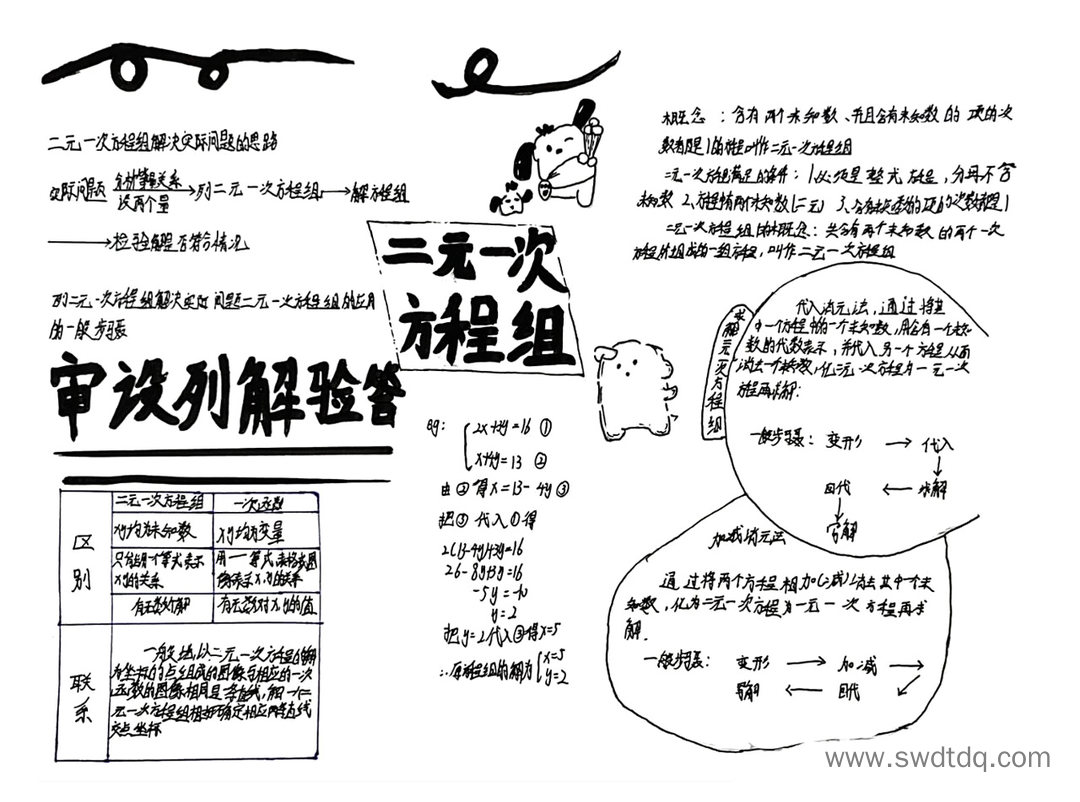 二元一次方程组解决实际问题的思路
实际问题 分析等量关系 设两个量 列二元一次方程组 解方程组
检验解是否符合情况
列二元一次方程组解决实际问题二元一次方程组的应用
的一般步骤
审设列解验答
二元一次
方程组
概念：含有两个未知数、并且含有未知数的项的次
数都是1的方程叫作二元一次方程组
二元一次方程满足的条件：1必须是整式方程，分母不含
未知数 2、方程有两个未知数(二元) 3、含有未知数的项的次数都是1
二元一次方程组的概念：共含有两个未知数的两个一次
方程所组成的一组方程，叫作二元一次方程组
求解二元一次方程组
代入消元法，通过将其
中一个方程中的一个未知数，用含有一个未知
数的代数表示，并代入另一个方程从而
消去一个未知数，化二元一次方程为一元一次
方程再求解：
一般步骤：变形 代入
回代 求解
写解
加减消元法
通过将两个方程相加(减)消去其中一个未
知数，化为二元一次方程为一元一次方程再求
解．
一般步骤：变形 加减
写解 回代
eg：
2x+3y=16 ①
x+4y=13 ②
由②得x=13-4y③
把③代入①得
2(13-4y)+3y=16
26-8y+3y=16
-5y=-10
y=2
把y=2代入③得x=5
∴原方程组的解为 x=5
y=2
二元一次方程组 一次函数
区别
x,y均为未知数 x,y均为变量
只能用一个等式表示
x,y的关系
有无数个解 有无数对x,y的值
联系
一般地，以二元一次方程的解
为坐标的点组成的图像与相应的一次
函数的图像相同是一条直线，解一个二
元一次方程组相当于确定相应两条直线
交点坐标
www.swdtdq.com